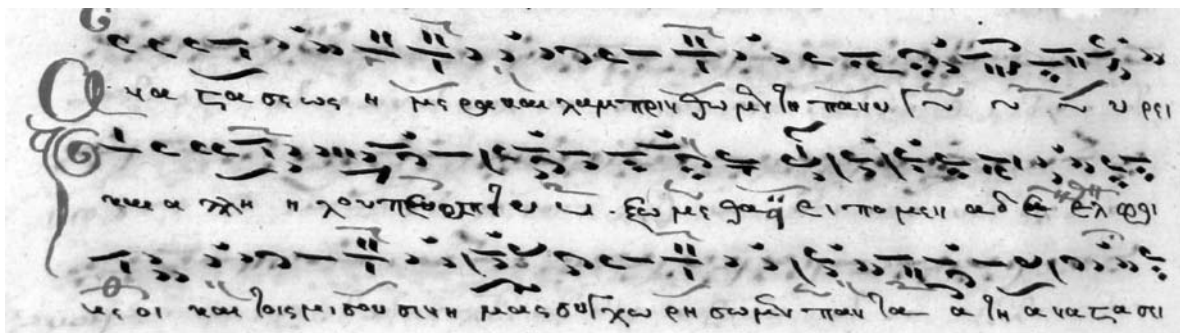 Α να ϛα σε ως η με ρα και λαμ πριν θω μεν τη πα νυ γ υ ρει
και α λλη η λου ξω με θα ει πο μεν α δε ελ φοι
και τοις μι σου σιν η μας συγ χω ρη σω μεν παν τα α τη α να ϛα σι